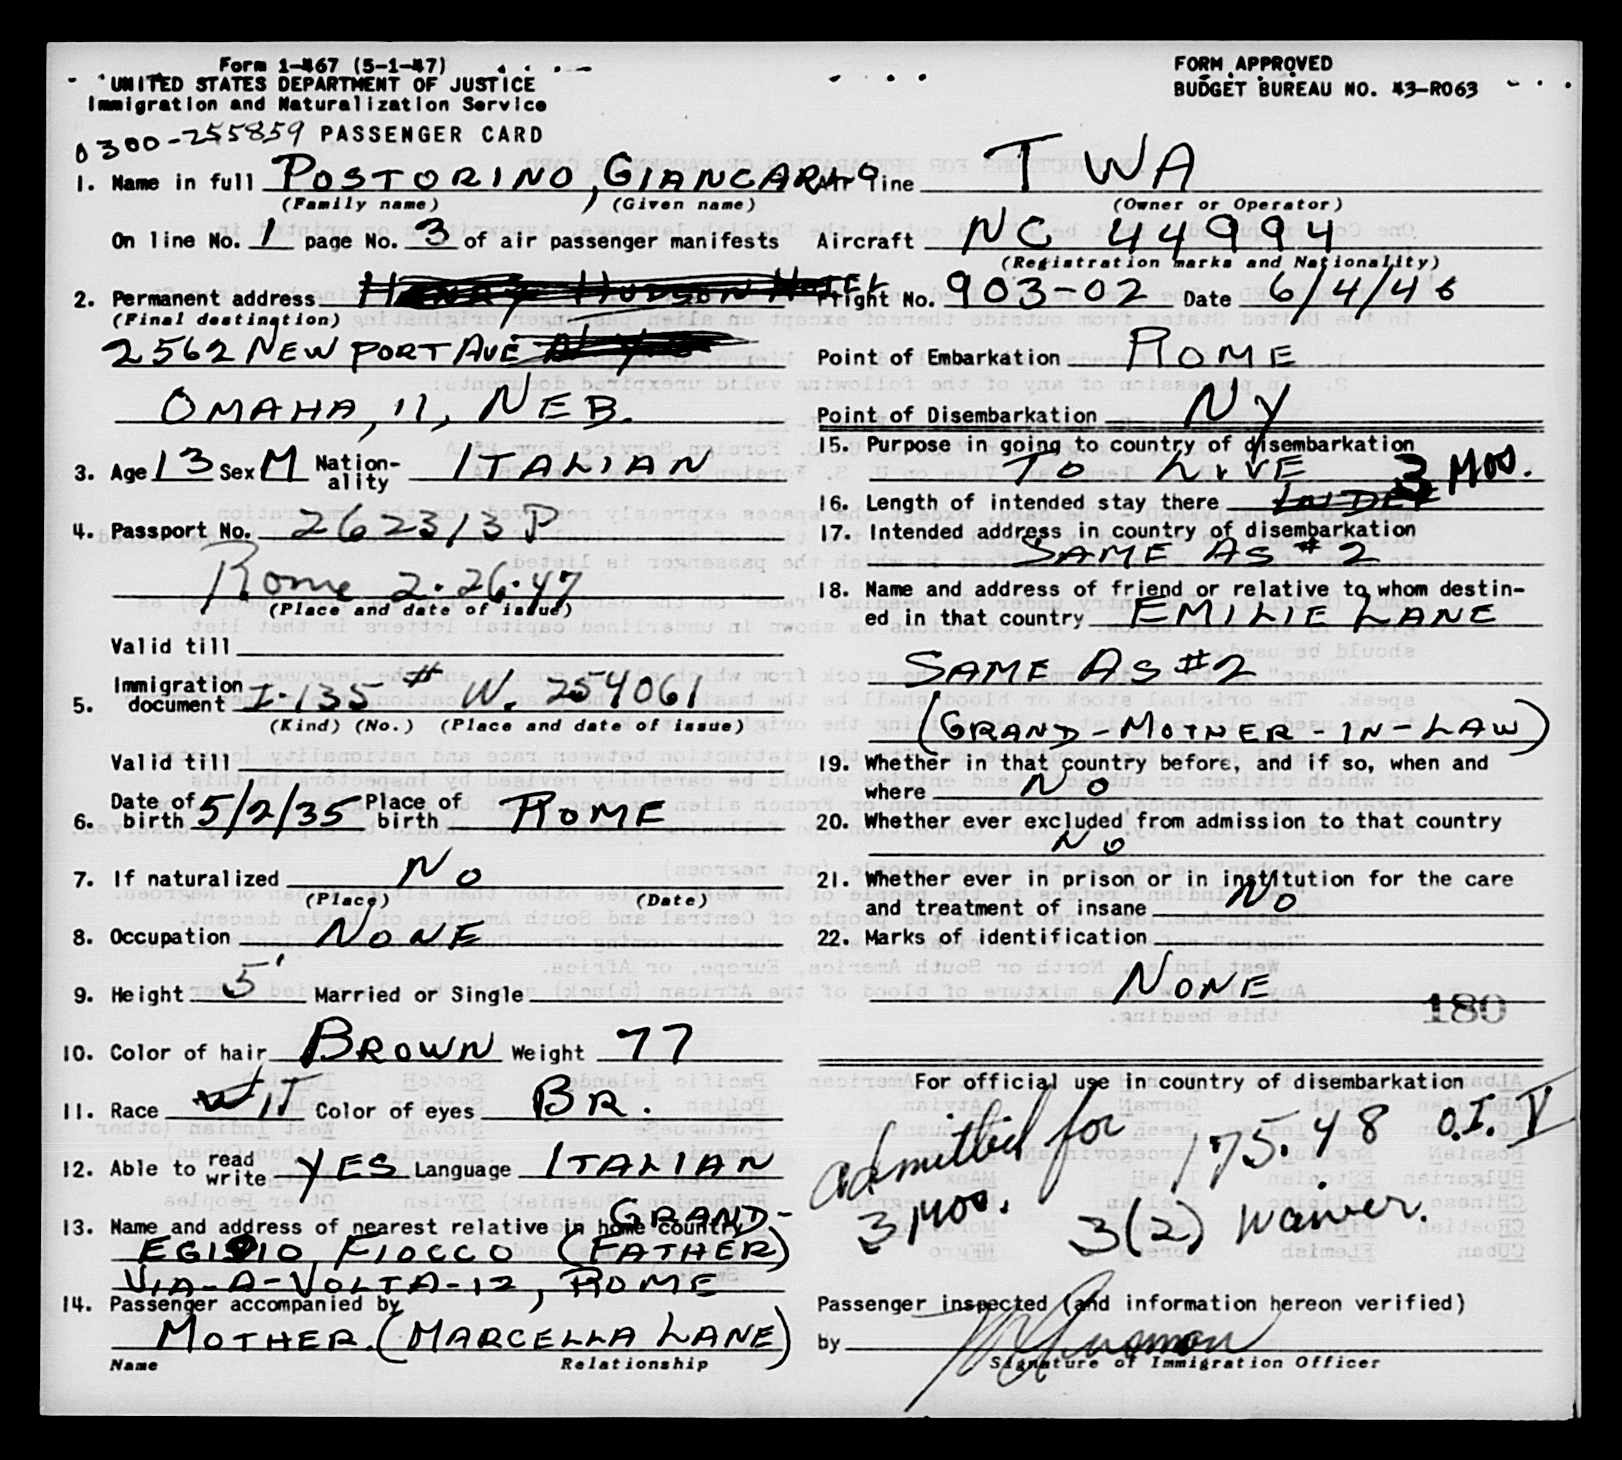 Form 1-467 (5-1-47)
UNITED STATES DEPARTMENT OF JUSTICE
Immigration and Naturalization Service
0300-255859 PASSENGER CARD
1. Name in full POSTORINO, GIANCARLO
(Family name) (Given name)
On line No. 1 page No. 3 of air passenger manifests
2. Permanent address HENRY HUDSON HOTEL
(Final destination)
2562 NEWPORT AVE
OMAHA, 11, NEB.
3. Age 13 Sex M Nation-ality ITALIAN
4. Passport No. 262313 P
Rome 2.26.47
(Place and date of issue)
Valid till
5. Immigration document I-135 # W. 254061
(Kind) (No.) (Place and date of issue)
Valid till
6. Date of birth 5/2/35 Place of birth ROME
7. If naturalized NO
(Place) (Date)
8. Occupation NONE
9. Height 5' Married or Single
10. Color of hair BROWN Weight 77
11. Race IT Color of eyes BR.
12. Able to read write YES Language ITALIAN
13. Name and address of nearest relative in home country GRAND-
EGIDIO FIOCCO (FATHER)
VIA-A-VOLTA-12, ROME
14. Passenger accompanied by
MOTHER. (MARCELLA LANE)
Name Relationship
FORM APPROVED
BUDGET BUREAU NO. 43-R063
Air line TWA
(Owner or Operator)
Aircraft NC 44994
(Registration marks and Nationality)
Flight No. 903-02 Date 6/4/46
Point of Embarkation ROME
Point of Disembarkation NY
15. Purpose in going to country of disembarkation
TO LIVE
16. Length of intended stay there 3 MOS.
17. Intended address in country of disembarkation
SAME AS #2
18. Name and address of friend or relative to whom destin-
ed in that country EMILIE LANE
SAME AS #2
(GRAND-MOTHER-IN-LAW)
19. Whether in that country before, and if so, when and
where NO
20. Whether ever excluded from admission to that country
NO
21. Whether ever in prison or in institution for the care
and treatment of insane NO
22. Marks of identification
NONE
180
For official use in country of disembarkation
admitted for 175.48 O.I. V
3 mos. 3(2) waiver.
Passenger inspected (and information hereon verified)
by
Signature of Immigration Officer